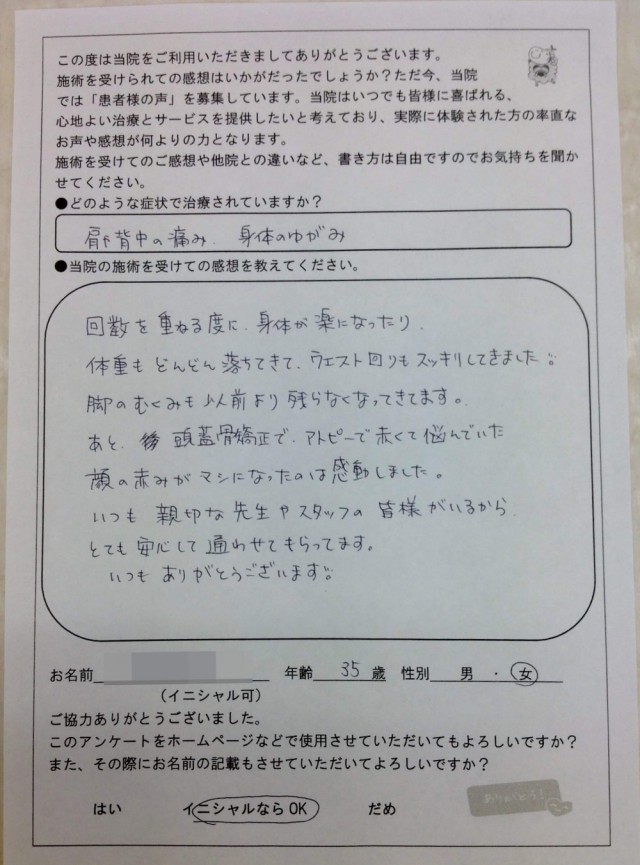 この度は当院をご利用いただきましてありがとうございます。
施術を受けられての感想はいかがだったでしょうか？ただ今、当院
では「患者様の声」を募集しています。当院はいつでも皆様に喜ばれる、
心地よい治療とサービスを提供したいと考えており、実際に体験された方の率直な
お声や感想が何よりの力となります。
施術を受けてのご感想や他院との違いなど、書き方は自由ですのでお気持ちを聞か
せてください。
●どのような症状で治療されていますか？
肩や背中の痛み、身体のゆがみ
●当院の施術を受けての感想を教えてください。
回数を重ねる度に、身体が楽になったり、
体重もどんどん落ちてきて、ウエスト回りもスッキリしてきました。
脚のむくみも以前より残らなくなってきてます。
あと、後頭蓋骨矯正で、アトピーで赤くて悩んでいた
顔の赤みがマシになったのは感動しました。
いつも親切な先生やスタッフの皆様がいるから、
とても安心して通わせてもらってます。
いつもありがとうございます。
お名前 年齢 35 歳 性別 男 ・ 女
（イニシャル可）
ご協力ありがとうございました。
このアンケートをホームページなどで使用させていただいてもよろしいですか？
また、その際にお名前の記載もさせていただいてよろしいですか？
はい イニシャルなら OK だめ
ありがとう